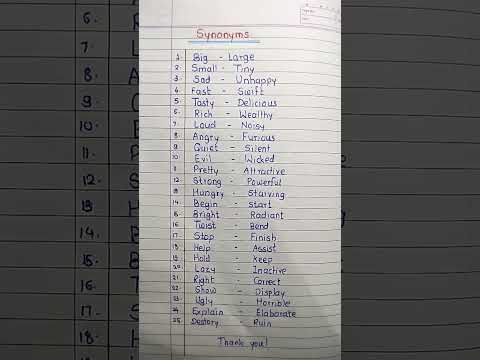 Synonyms
1. Big - Large
2. Small - Tiny
3. Sad - Unhappy
4. Fast - Swift
5. Tasty - Delicious
6. Rich - Wealthy
7. Loud - Noisy
8. Angry - Furious
9. Quiet - Silent
10. Evil - Wicked
11. Pretty - Attractive
12. Strong - Powerful
13. Hungry - Starving
14. Begin - Start
15. Bright - Radiant
16. Twist - Bend
17. Stop - Finish
18. Help - Assist
19. Hold - Keep
20. Lazy - Inactive
21. Right - Correct
22. Show - Display
23. Ugly - Horrible
24. Explain - Elaborate
25. Destory - Ruin
Thank you!
6.
7. L
8. A
9.
10.
11. P
12. S
13. H
14. B
15. B
16. T
17. S
18. H